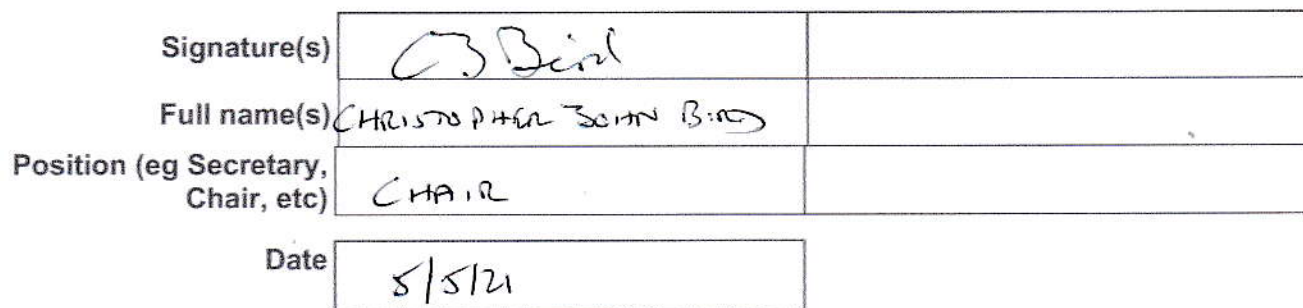 Signature(s) CJ Bird
Full name(s) CHRISTOPHER JOHN BIRD
Position (eg Secretary,
Chair, etc) CHAIR
Date 5/5/21